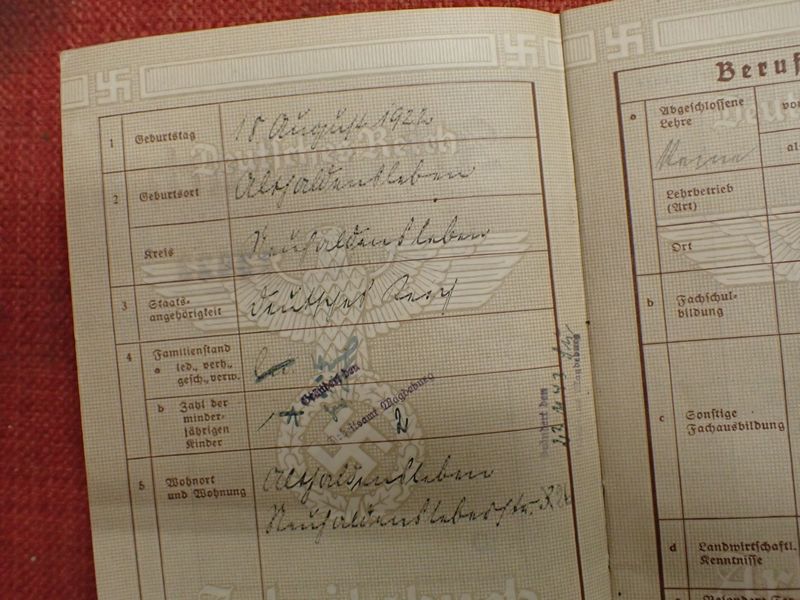 1 Geburtstag 18 August 1922
Deutsches Reich
2 Geburtsort Althaldensleben
Kreis Neuhaldensleben
3 Staats-
angehörigkeit Deutsches Reich
4 Familienstand
a led., verh.,
gesch., verw.
b Zahl der
minder-
jährigen
Kinder
Geändert den
Arbeitsamt Magdeburg
2
5 Wohnort
und Wohnung
Althaldensleben
Neuhaldensleberstr.
Arbeitsbuch
Geändert den
Magdeburg
Beruf
a Abgeschlossene
Lehre
Keine
Lehrbetrieb
(Art)
Ort
b Fachschul-
bildung
c Sonstige
Fachausbildung
d Landwirtschaftl.
Kenntnisse